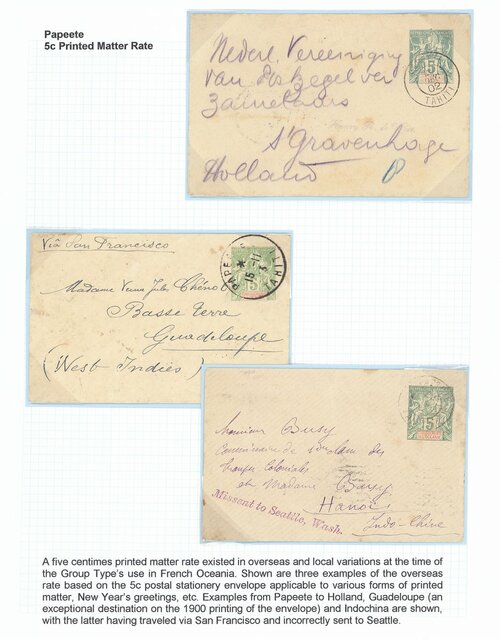 Papeete
5c Printed Matter Rate
Nederl. Vereeniging
van
Holland
's Gravenhage
5
DEC
02
TAHITI
Viâ San Francisco
PAPE
15 -11
TAHITI
5
Madame Veuve Jules Chénot
Basse Terre
Guadeloupe
(West Indies)
Monsieur Busy
Commissaire de des
troupes Coloniales
et Madame Busy
Hanoï
Indo-Chine
5
Missent to Seattle, Wash.
A five centimes printed matter rate existed in overseas and local variations at the time of
the Group Type's use in French Oceania. Shown are three examples of the overseas
rate based on the 5c postal stationery envelope applicable to various forms of printed
matter, New Year's greetings, etc. Examples from Papeete to Holland, Guadeloupe (an
exceptional destination on the 1900 printing of the envelope) and Indochina are shown,
with the latter having traveled via San Francisco and incorrectly sent to Seattle.